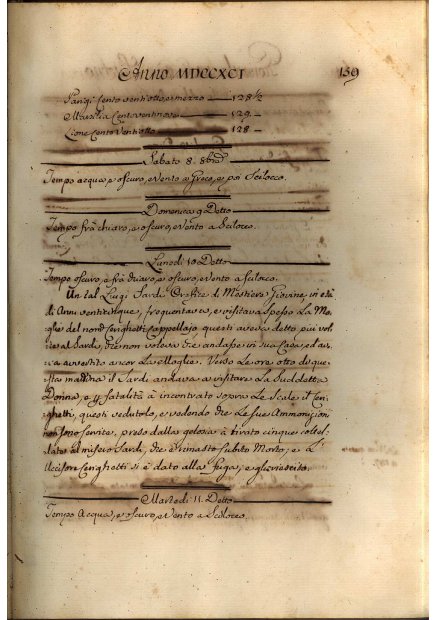 Anno MDCCXCI 139
Parigi Cento ventiotto, e mezzo 128 1/2
Marsilia Centoventinove 129 —
Lione Cento Ventiotto 128 —
Sabato 8. 8bre
Tempo acqua, e oscuro, e Vento a Greco, e poi Scilocco.
Domenica 9 Detto
Tempo frà chiaro, e oscuro, e Vento a Scilocco.
Lunedi 10 Detto
Tempo oscuro, e frà chiaro, e oscuro, e Vento a Scilocco.
Un tal Luigi Sardi Orefice di Mestiere Giovine, in età
di Anni ventcinque, frequentava, e visitava spesso La Mo-
glie del nom. Cerighetti Cappellajo questi aveva detto più vol-
te al Sardi, che non voleva che andasse in sua Casa, ed av-
eva avvertito ancor La Moglie. Verso Le ore otto di que-
sta mattina il Sardi andava a visitare La Suddetta
Donna, e p fatalità à incontrato sopra Le Scale il Ceri-
ghetti, questi vedutolo, e vedendo che Le sue Ammonizioni
non sono servite, preso dalla gelosia à tirato cinque coltel-
late al misero Sardi, che è rimasto subito Morto, e L'
Uccisore Cerighetti si è dato alla fuga, e gli è riescito.
Martedi 11. Detto
Tempo Acqua, e oscuro, e Vento a Scilocco.